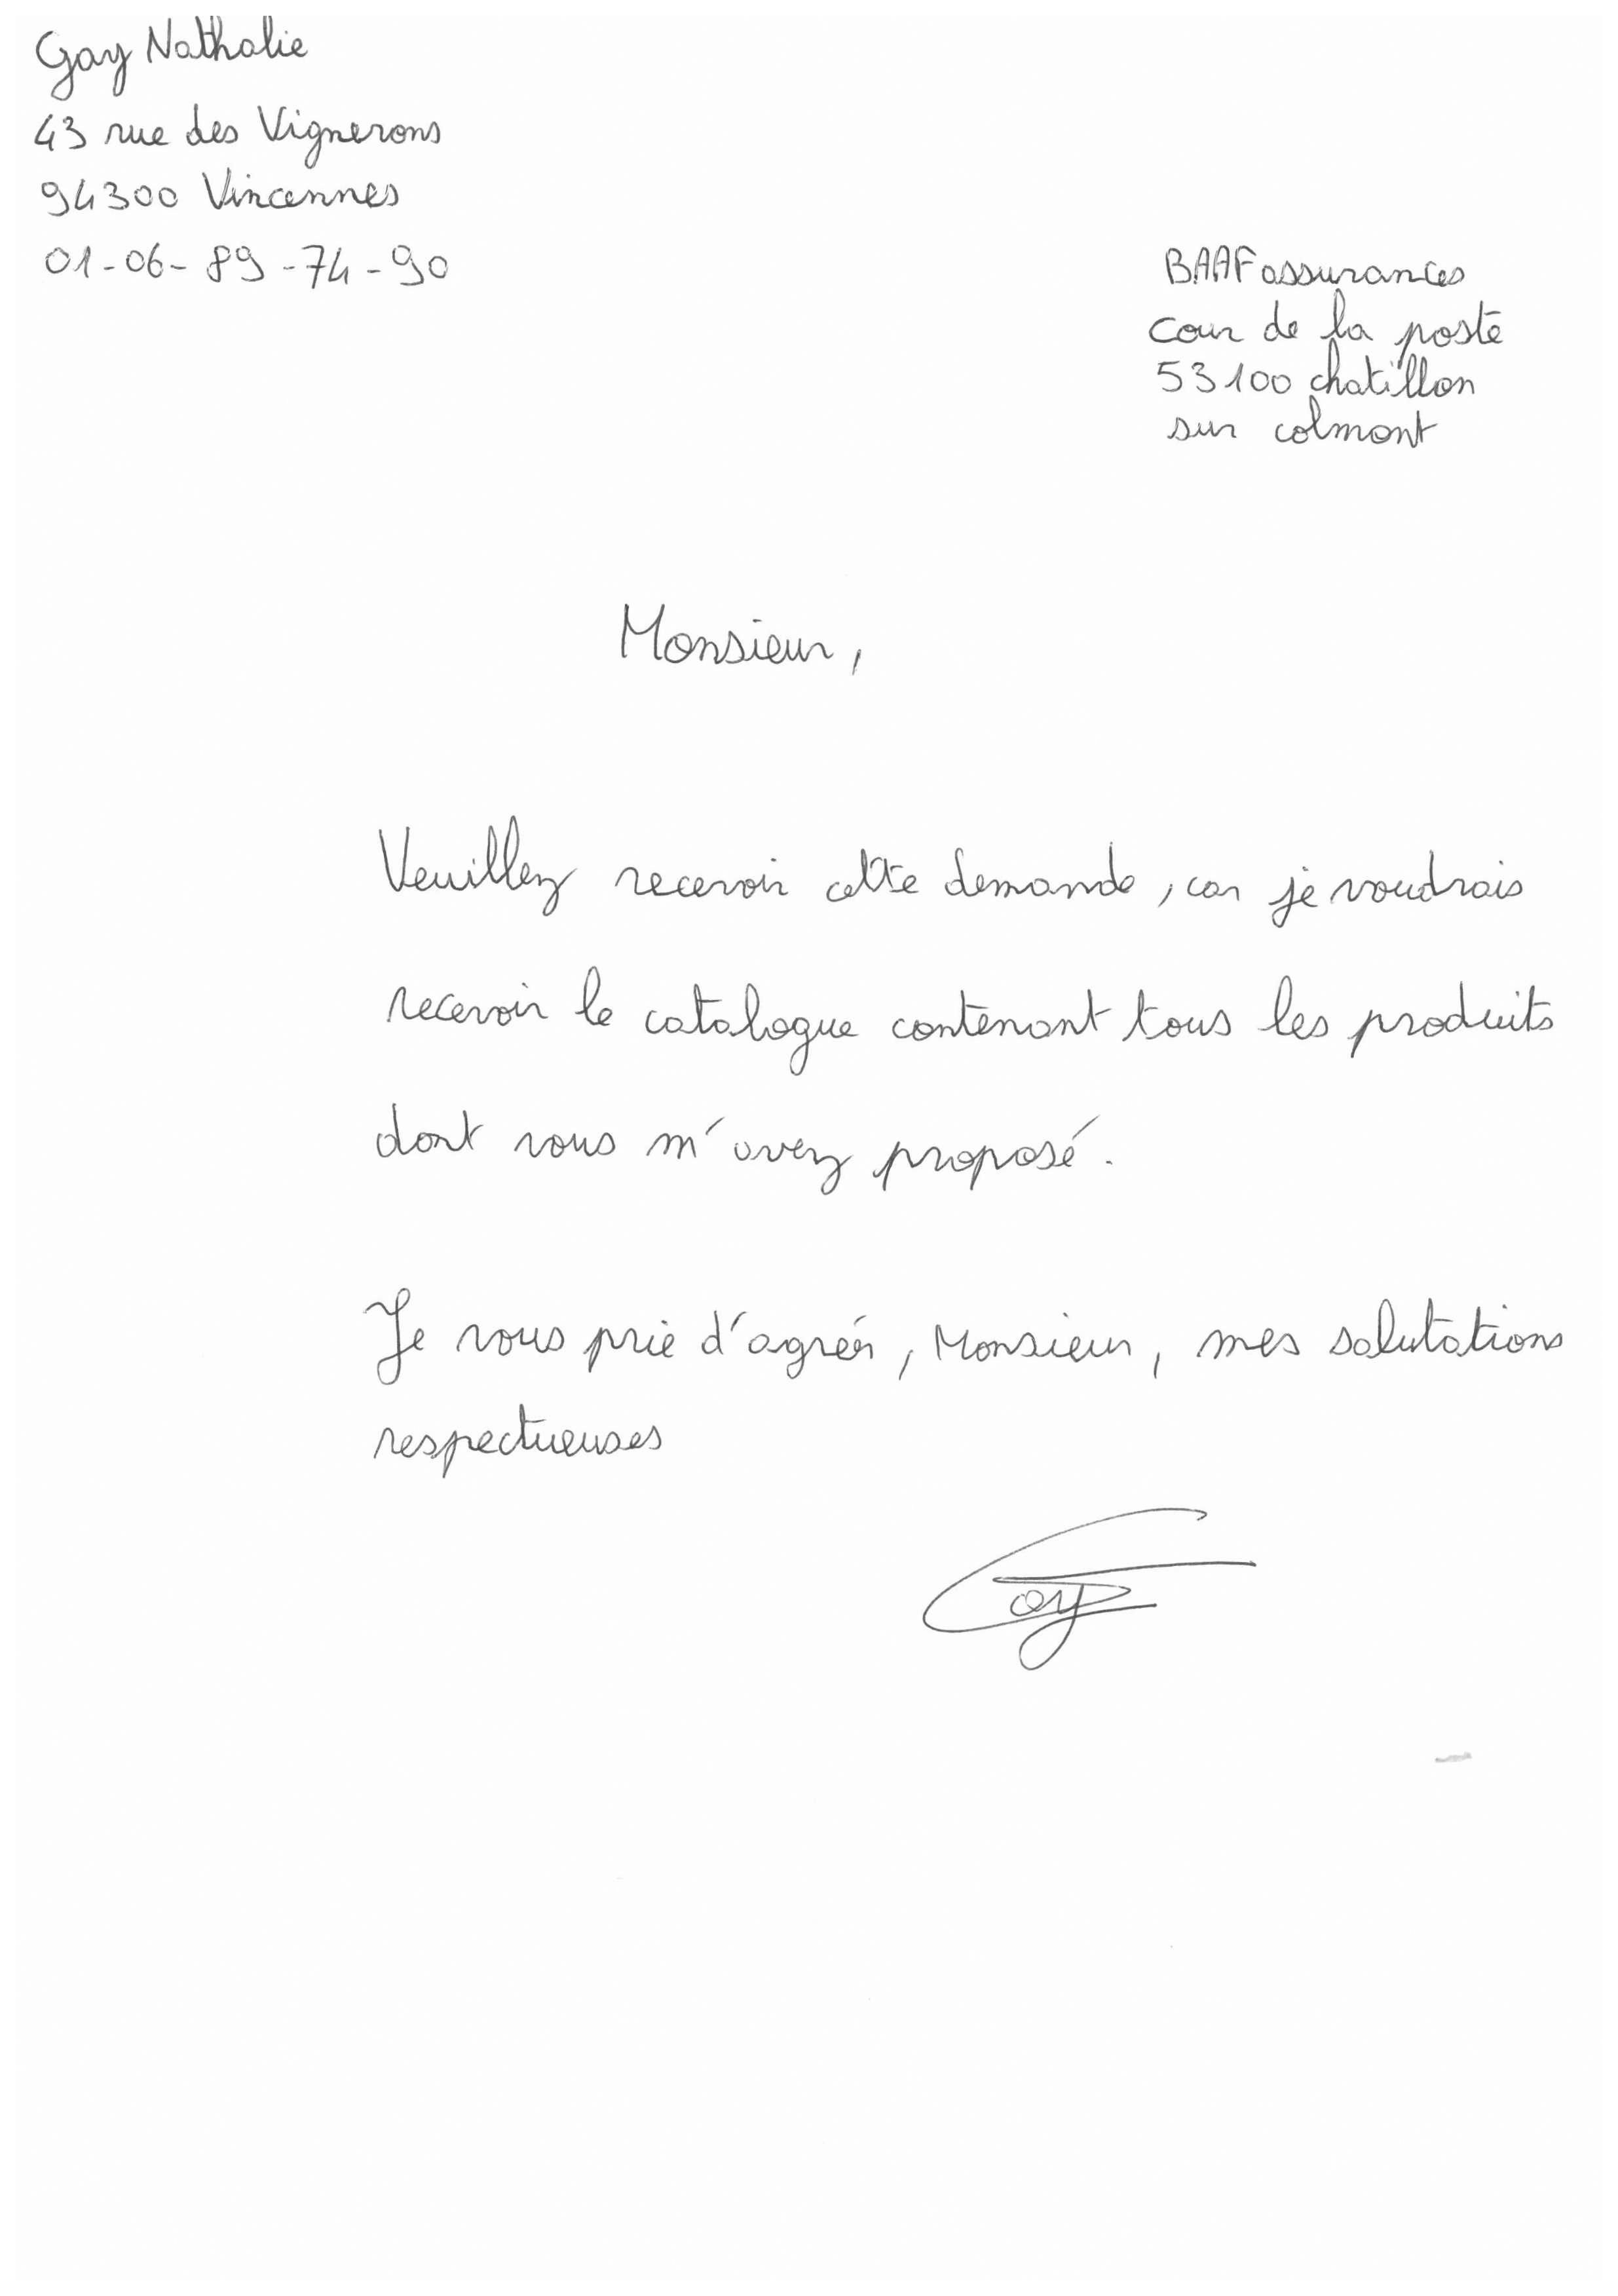 Gay Nathalie
43 rue des Vignerons
94300 Vincennes
01-06-89-74-90
BAAF assurances
cour de la poste
53100 chatillon
sur colmont
Monsieur,
Veuillez recevoir cette demande, car je voudrais
recevoir le catalogue contenant tous les produits
dont vous m'avez proposé.
Je vous prie d'agréer, Monsieur, mes salutations
respectueuses
Gay